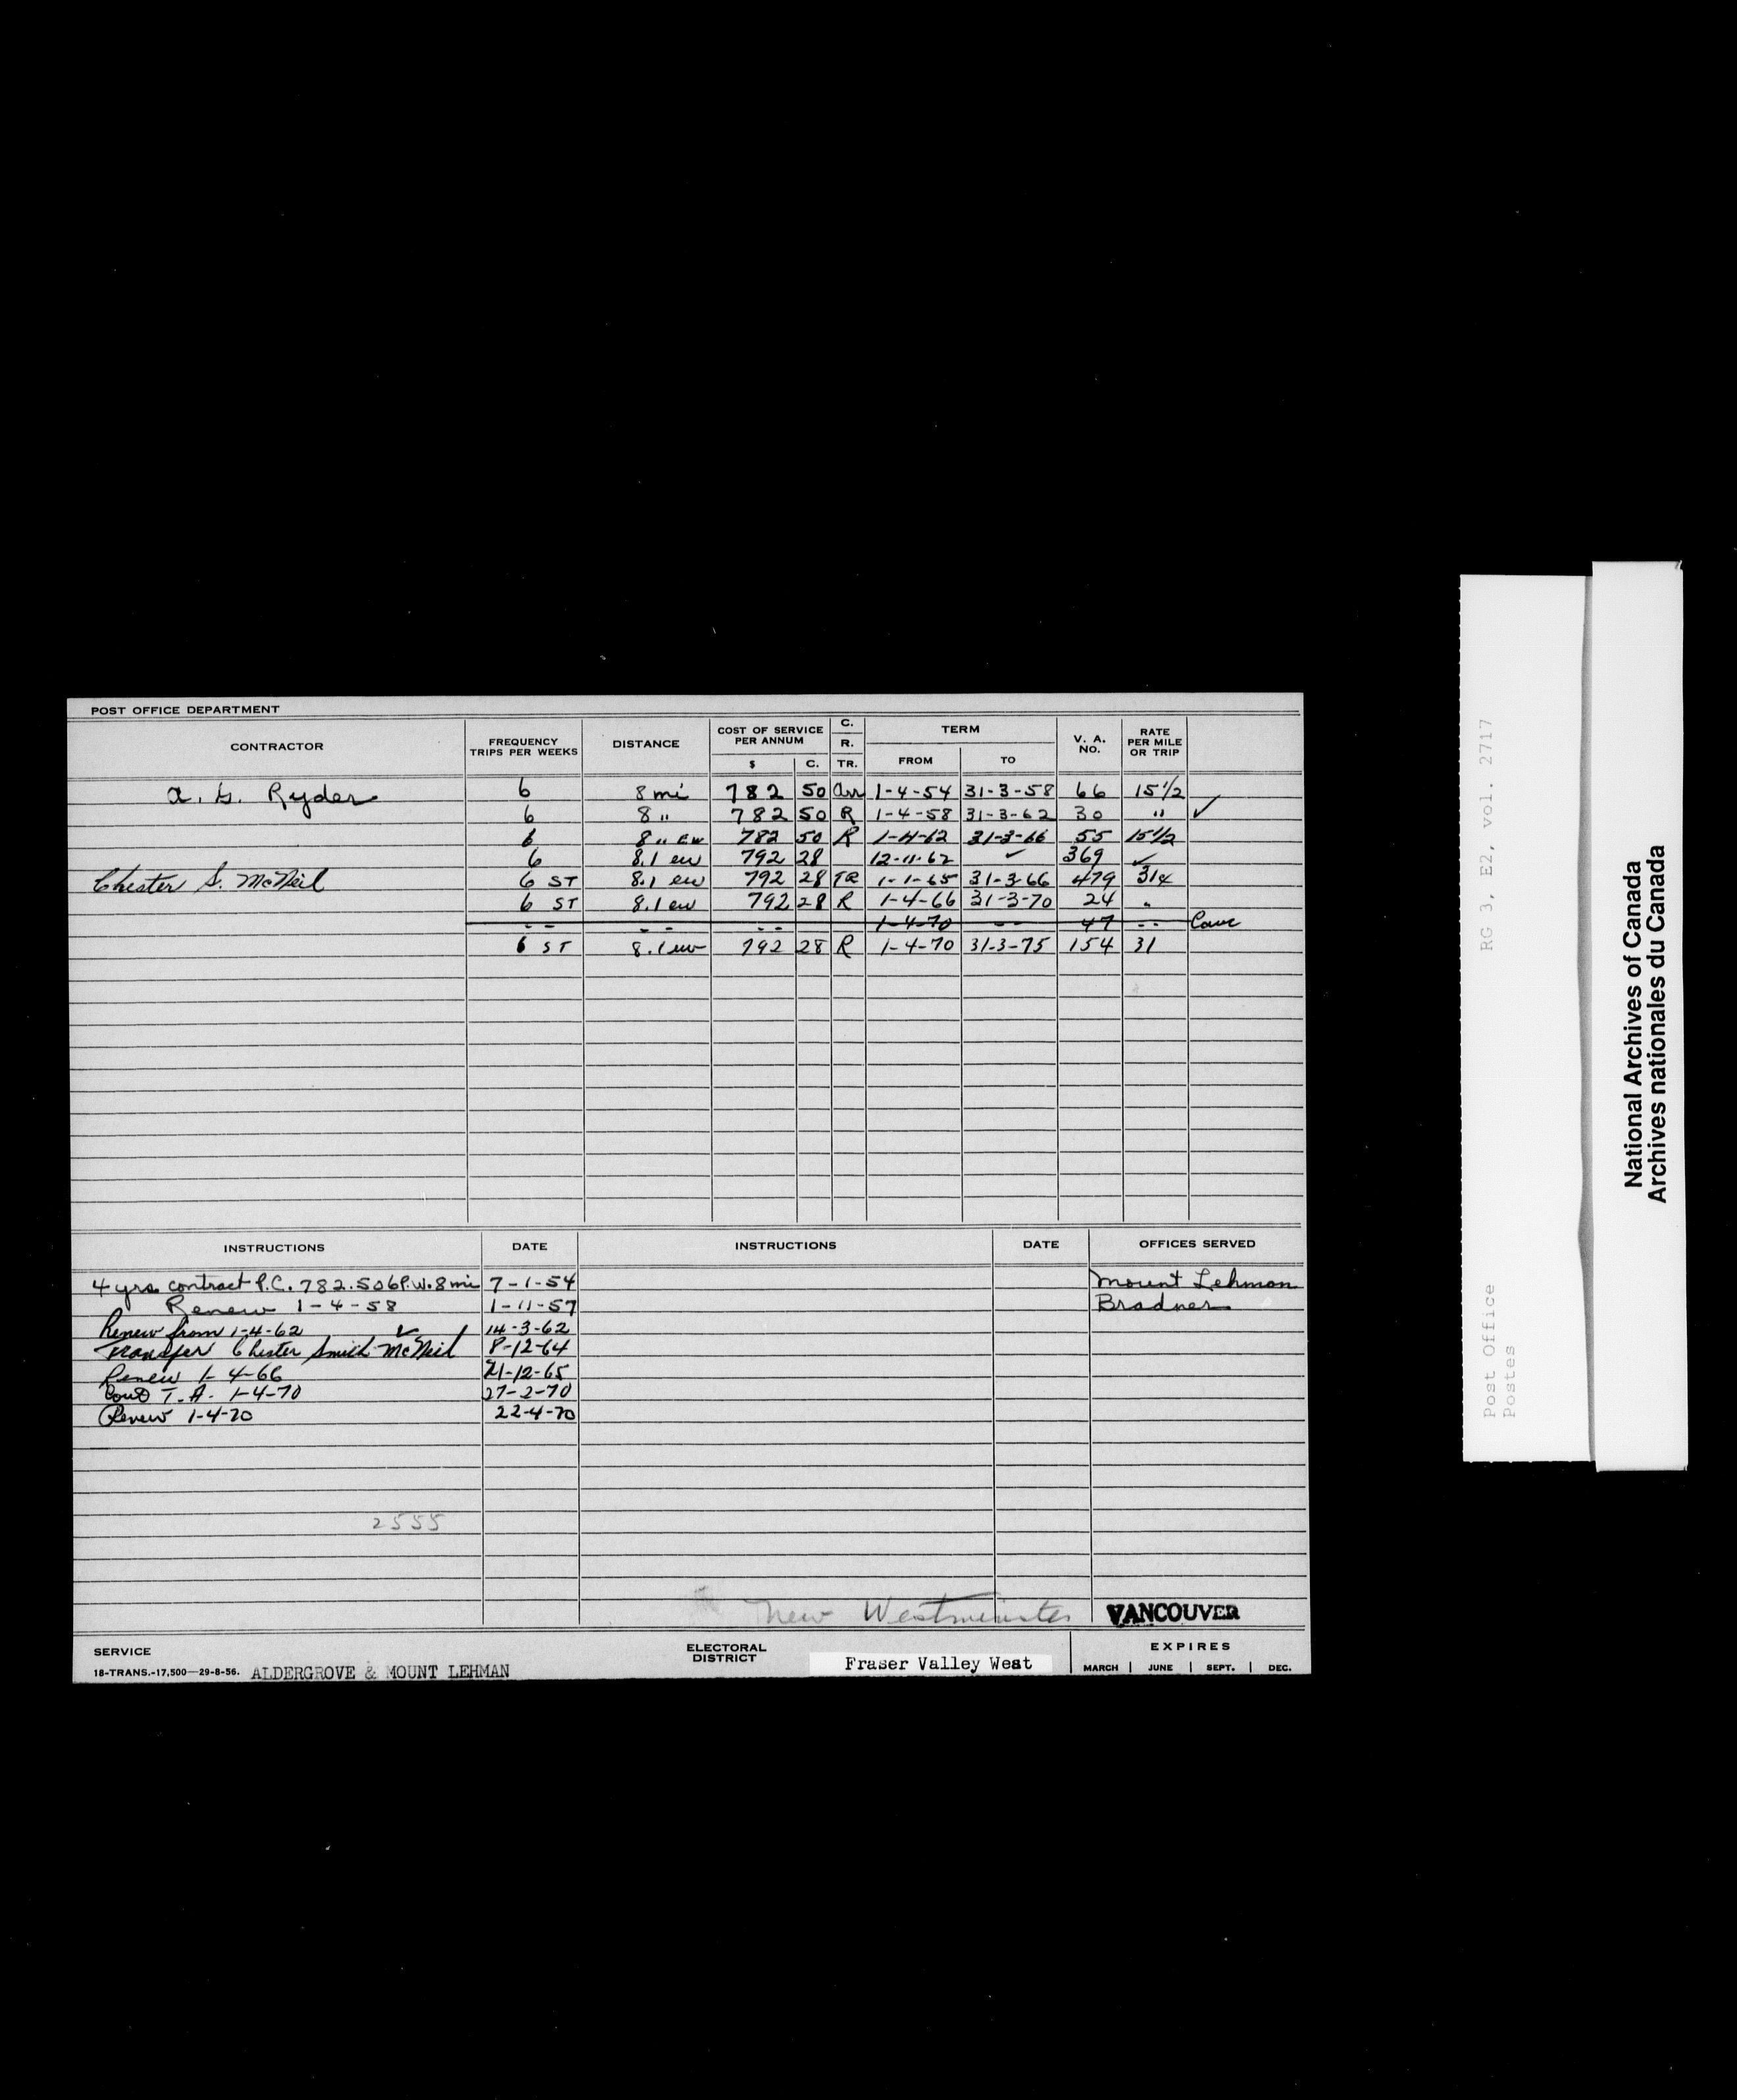 POST OFFICE DEPARTMENT
CONTRACTOR FREQUENCY TRIPS PER WEEKS DISTANCE COST OF SERVICE PER ANNUM $ C. C. R. TR. TERM FROM TO V. A. NO. RATE PER MILE OR TRIP
A. G. Ryder 6 8 mi 782 50 1-4-54 31-3-58 66 15 1/2
6 8 " 782 50 R 1-4-58 31-3-62 30 " ✓
6 8 " ew 782 50 R 1-4-62 31-3-66 55 15 1/2
6 8.1 ew 792 28 12-11-62 ✓ 369 ✓
Chester S. McNeil 6 ST 8.1 ew 792 28 TR 1-1-65 31-3-66 479 314
6 ST 8.1 ew 792 28 R 1-4-66 31-3-70 24 "
-- -- -- 1-4-70 -- 47 -- Canc
6 ST 8.1 ew 792 28 R 1-4-70 31-3-75 154 31
INSTRUCTIONS DATE INSTRUCTIONS DATE OFFICES SERVED
4 yrs contract P.C. 782.50 6P.W. 8 mi 7-1-54 Mount Lehman
Renew 1-4-58 1-11-57 Bradner
Renew from 1-4-62 ✓ 14-3-62
Transfer Chester Smith McNeil 8-12-64
Renew 1-4-66 21-12-65
Cont T.A. 1-4-70 27-2-70
Renew 1-4-70 22-4-70
2555
New Westminster VANCOUVER
SERVICE ELECTORAL DISTRICT EXPIRES
18-TRANS.-17,500—29-8-56. ALDERGROVE & MOUNT LEHMAN Fraser Valley West MARCH | JUNE | SEPT. | DEC.
RG 3, E2, vol. 2717
Post Office
Postes
National Archives of Canada
Archives nationales du Canada